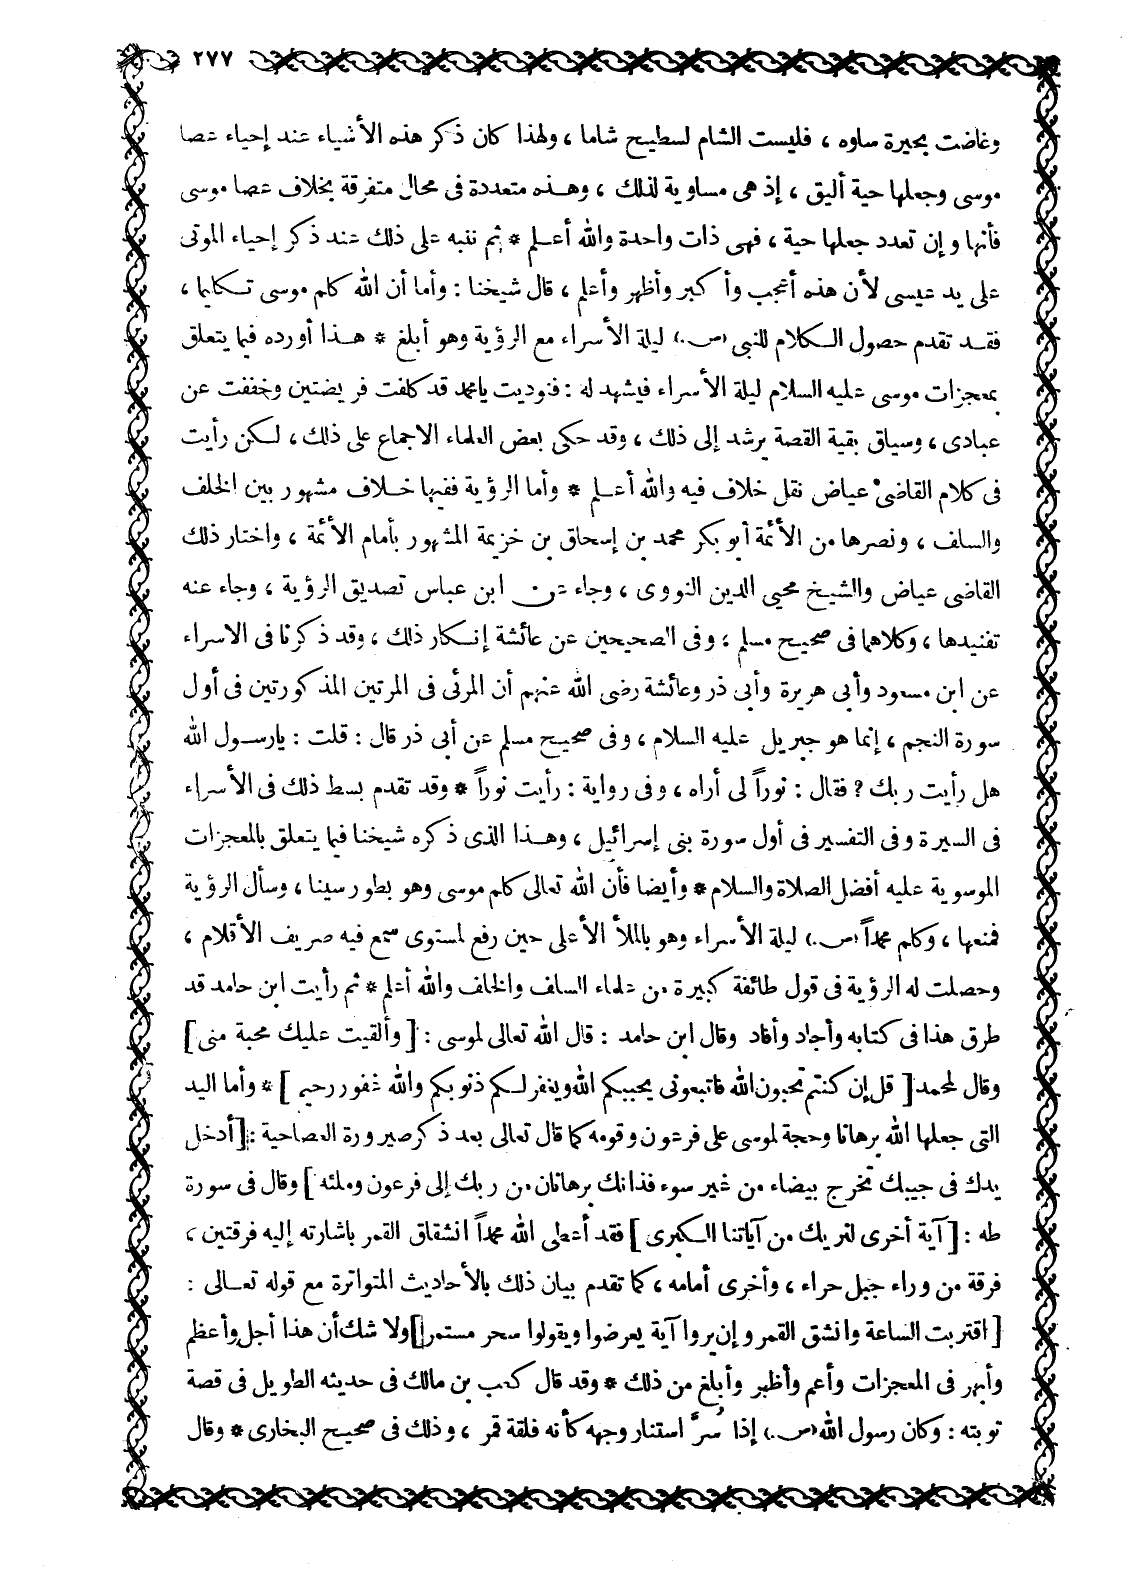 ٢٧٧
وغاضت بحيرة ساوه ، فليست الشام لسطيح شاما ، ولهذا كان ذكر هذه الأشياء عند إحياء عصا
موسى وجعلها حية أليق ، إذ هى مساوية لذلك ، وهذه متعددة فى محال متفرقة بخلاف عصا موسى
فأنها وإن تعدد جعلها حية ، فهى ذات واحدة والله أعلم * ثم ننبه على ذلك عند ذكر إحياء الموتى
على يد عيسى لأن هذه أعجب وأكبر وأظهر وأعلم ، قال شيخنا : وأما أن الله كلم موسى تكليما ،
فقد تقدم حصول الكلام للنبى (ص.) ليلة الأسراء مع الرؤية وهو أبلغ * هذا أورده فيما يتعلق
بمعجزات موسى عليه السلام ليلة الأسراء فيشهد له : فنوديت يامحمد قد كلفت فريضتين وخففت عن
عبادى ، وسياق بقية القصة يرشد إلى ذلك ، وقد حكى بعض العلماء الاجماع على ذلك ، لكن رأيت
فى كلام القاضى عياض نقل خلاف فيه والله أعلم * وأما الرؤية ففيها خلاف مشهور بين الخلف
والسلف ، ونصرها من الأئمة أبو بكر محمد بن إسحاق بن خزيمة المشهور بأمام الأئمة ، واختار ذلك
القاضى عياض والشيخ محيى الدين النووى ، وجاء عن ابن عباس تصديق الرؤية ، وجاء عنه
تفنيدها ، وكلاهما فى صحيح مسلم ؛ وفى الصحيحين عن عائشة إنكار ذلك ، وقد ذكرنا فى الاسراء
عن ابن مسعود وأبى هريرة وأبى ذر وعائشة رضى الله عنهم أن المرئى فى المرتين المذكورتين فى أول
سورة النجم ، إنما هو جبريل عليه السلام ، وفى صحيح مسلم عن أبى ذر قال : قلت : يارسول الله
هل رأيت ربك ? فقال : نوراً لى أراه ، وفى رواية : رأيت نوراً * وقد تقدم بسط ذلك فى الأسراء
فى السيرة وفى التفسير فى أول سورة بنى إسرائيل ، وهذا الذى ذكره شيخنا فيما يتعلق بالمعجزات
الموسوية عليه أفضل الصلاة والسلام * وأيضا فأن الله تعالى كلم موسى وهو بطور سينا ، وسأل الرؤية
فمنعها ، وكلم محمداً (ص.) ليلة الأسراء وهو بالملأ الأعلى حين رفع لمستوى سمع فيه صريف الأقلام ،
وحصلت له الرؤية فى قول طائفة كبيرة من علماء السلف والخلف والله أعلم * ثم رأيت ابن حامد قد
طرق هذا فى كتابه وأجاد وأفاد وقال ابن حامد : قال الله تعالى لموسى : [ وألقيت عليك محبة منى ]
وقال لمحمد [ قل إن كنتم تحبون الله فاتبعونى يحببكم الله ويغفر لكم ذنوبكم والله غفور رحيم ] * وأما اليد
التى جعلها الله برهانا وحجة لموسى على فرعون وقومه كما قال تعالى بعد ذكر صيرورة العصاحية : [أدخل
يدك فى جيبك تخرج بيضاء من غير سوء فذانك برهانان من ربك إلى فرعون وملئه ] وقال فى سورة
طه : [ آية أخرى لنريك من آياتنا الكبرى ] فقد أعطى الله محمداً انشقاق القمر باشارته إليه فرقتين ،
فرقة من وراء جبل حراء ، وأخرى أمامه ، كما تقدم بيان ذلك بالأحاديث المتواترة مع قوله تعالى :
[ اقتربت الساعة وانشق القمر وإن يروا آية يعرضوا ويقولوا سحر مستمر ] ولا شك أن هذا أجل وأعظم
وأبهر فى المعجزات وأعم وأظهر وأبلغ من ذلك * وقد قال كعب بن مالك فى حديثه الطويل فى قصة
توبته : وكان رسول الله (ص.) إذا سُرَّ استنار وجهه كأنه فلقة قمر ، وذلك فى صحيح البخارى * وقال